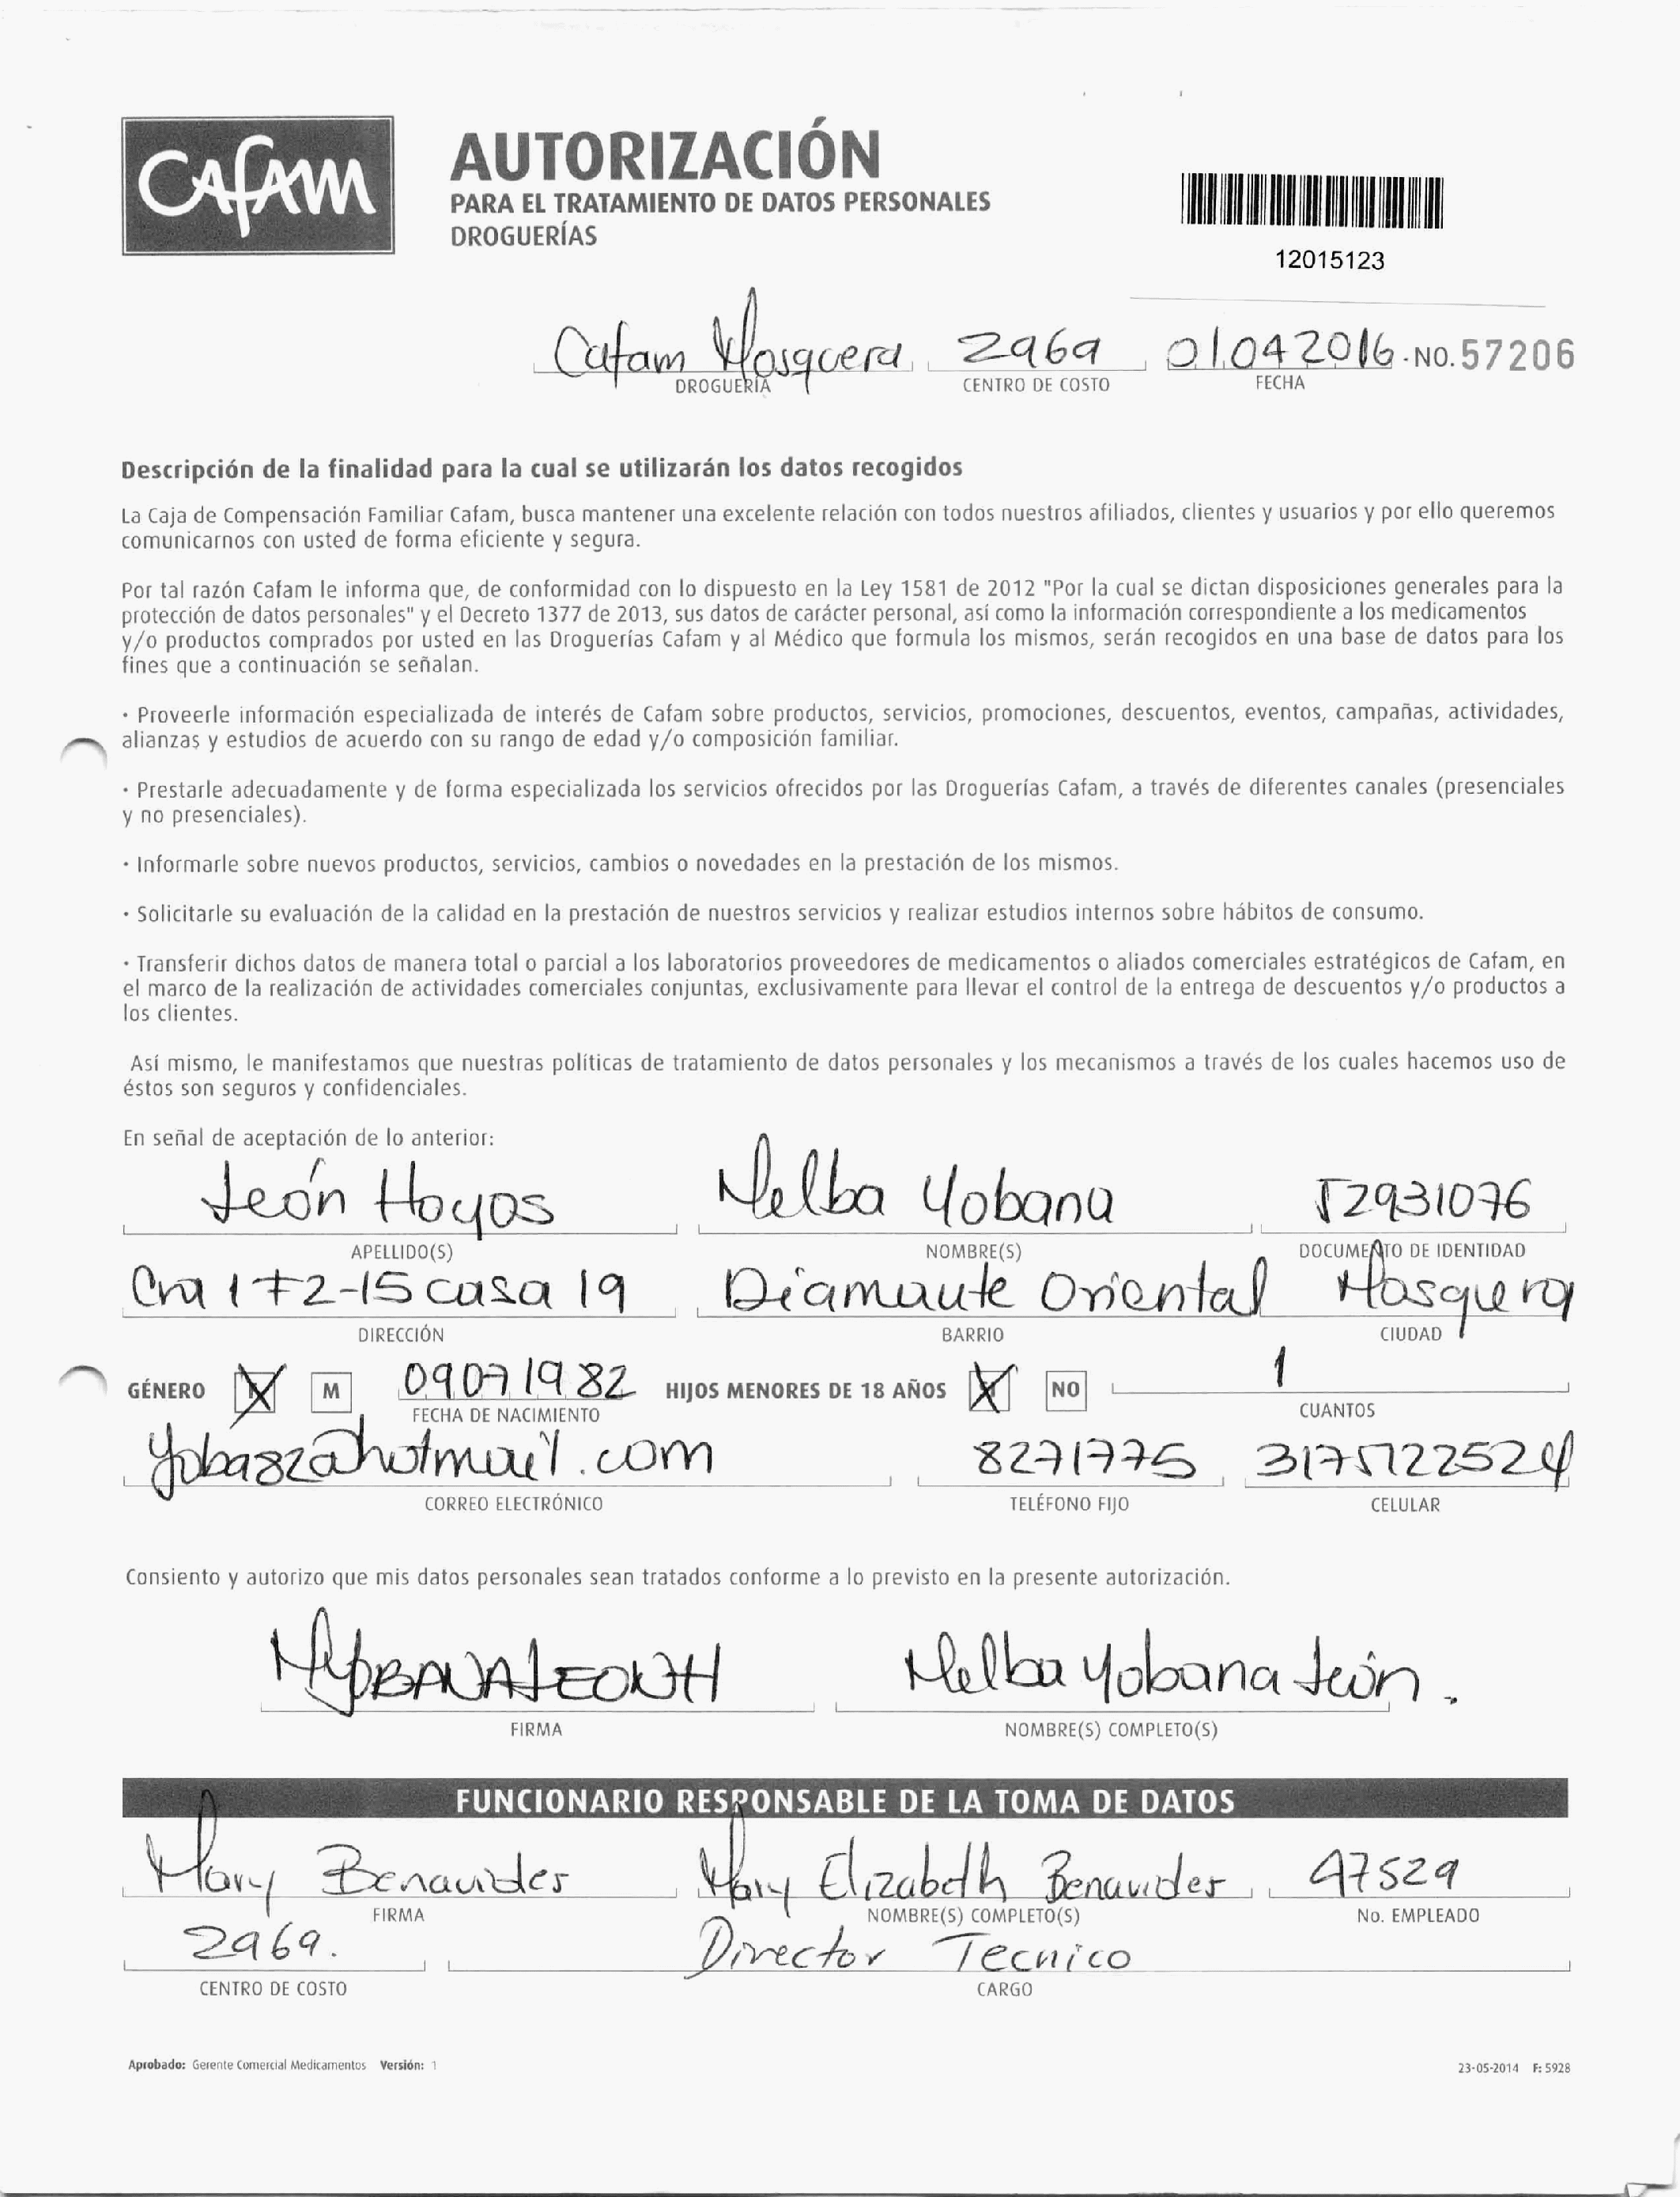 CAFAM
AUTORIZACIÓN
PARA EL TRATAMIENTO DE DATOS PERSONALES
DROGUERÍAS
12015123
Cafam Mosquera 2969 01042016 NO. 57206
DROGUERÍA CENTRO DE COSTO FECHA
Descripción de la finalidad para la cual se utilizarán los datos recogidos
La Caja de Compensación Familiar Cafam, busca mantener una excelente relación con todos nuestros afiliados, clientes y usuarios y por ello queremos
comunicarnos con usted de forma eficiente y segura.
Por tal razón Cafam le informa que, de conformidad con lo dispuesto en la Ley 1581 de 2012 "Por la cual se dictan disposiciones generales para la
protección de datos personales" y el Decreto 1377 de 2013, sus datos de carácter personal, así como la información correspondiente a los medicamentos
y/o productos comprados por usted en las Droguerías Cafam y al Médico que formula los mismos, serán recogidos en una base de datos para los
fines que a continuación se señalan.
· Proveerle información especializada de interés de Cafam sobre productos, servicios, promociones, descuentos, eventos, campañas, actividades,
alianzas y estudios de acuerdo con su rango de edad y/o composición familiar.
· Prestarle adecuadamente y de forma especializada los servicios ofrecidos por las Droguerías Cafam, a través de diferentes canales (presenciales
y no presenciales).
· Informarle sobre nuevos productos, servicios, cambios o novedades en la prestación de los mismos.
· Solicitarle su evaluación de la calidad en la prestación de nuestros servicios y realizar estudios internos sobre hábitos de consumo.
· Transferir dichos datos de manera total o parcial a los laboratorios proveedores de medicamentos o aliados comerciales estratégicos de Cafam, en
el marco de la realización de actividades comerciales conjuntas, exclusivamente para llevar el control de la entrega de descuentos y/o productos a
los clientes.
Así mismo, le manifestamos que nuestras políticas de tratamiento de datos personales y los mecanismos a través de los cuales hacemos uso de
éstos son seguros y confidenciales.
En señal de aceptación de lo anterior:
León Hoyos Melba Yobana 52931076
APELLIDO(S) NOMBRE(S) DOCUMENTO DE IDENTIDAD
Cra 1 72-15 casa 19 Diamante Oriental Mosquera
DIRECCIÓN BARRIO CIUDAD
GÉNERO X M 09071982 HIJOS MENORES DE 18 AÑOS X NO 1
FECHA DE NACIMIENTO CUANTOS
yoba82@hotmail.com 8271775 3175122524
CORREO ELECTRÓNICO TELÉFONO FIJO CELULAR
Consiento y autorizo que mis datos personales sean tratados conforme a lo previsto en la presente autorización.
Melba Yobana León.
FIRMA NOMBRE(S) COMPLETO(S)
FUNCIONARIO RESPONSABLE DE LA TOMA DE DATOS
Mary Benavides Mary Elizabeth Benavides 47529
FIRMA NOMBRE(S) COMPLETO(S) No. EMPLEADO
2969. Director Tecnico
CENTRO DE COSTO CARGO
Aprobado: Gerente Comercial Medicamentos Versión: 1 23-05-2014 F: 5928